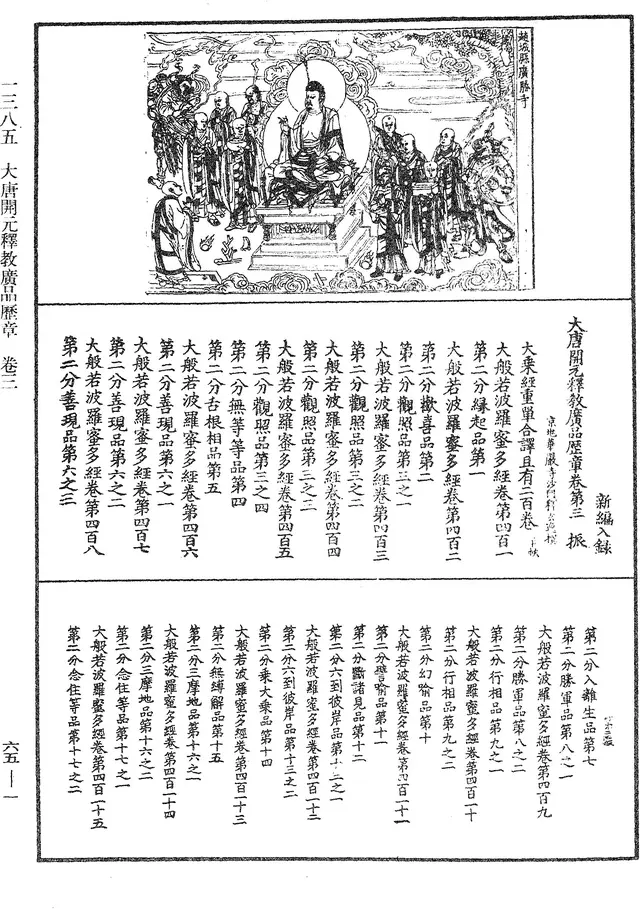 趙城縣廣勝寺
新編入錄
大唐開元釋教廣品歷章卷第三 振
大乘經重單合譯且有二百卷
大般若波羅蜜多經卷第四百一
第二分緣起品第一
大般若波羅蜜多經卷第四百二
第二分歡喜品第二
第二分觀照品第三之一
大般若波羅蜜多經卷第四百三
第二分觀照品第三之二
大般若波羅蜜多經卷第四百四
第二分觀照品第三之三
大般若波羅蜜多經卷第四百五
第二分觀照品第三之四
第二分無等等品第四
第二分舌根相品第五
大般若波羅蜜多經卷第四百六
第二分善現品第六之一
大般若波羅蜜多經卷第四百七
第二分善現品第六之二
大般若波羅蜜多經卷第四百八
第二分善現品第六之三
第二分入離生品第七
第二分勝軍品第八之一
大般若波羅蜜多經卷第四百九
第二分勝軍品第八之二
第二分行相品第九之一
大般若波羅蜜多經卷第四百一十
第二分行相品第九之二
第二分幻喻品第十
大般若波羅蜜多經卷第四百一十一
第二分譬喻品第十一
第二分斷諸見品第十二
第二分六到彼岸品第十三之一
大般若波羅蜜多經卷第四百一十二
第二分六到彼岸品第十三之二
第二分乘大乘品第十四
大般若波羅蜜多經卷第四百一十三
第二分無縛解品第十五
第二分三摩地品第十六之一
大般若波羅蜜多經卷第四百一十四
第二分三摩地品第十六之二
第二分念住等品第十七之一
大般若波羅蜜多經卷第四百一十五
第二分念住等品第十七之二
一三八五 大唐開元釋教廣品歷章 卷三
六五—一